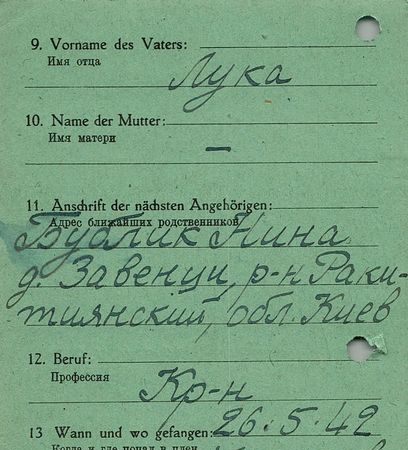 9. Vorname des Vaters:
Имя отца
Лука
10. Name der Mutter:
Имя матери
—
11. Anschrift der nächsten Angehörigen:
Адрес ближайших родственников
Бублик Нина
д. Завенци, р-н Раки-
тиянский, обл. Киев
12. Beruf:
Профессия
Кр-н
13 Wann und wo gefangen: 26.5.42
Когда и где попал в плен